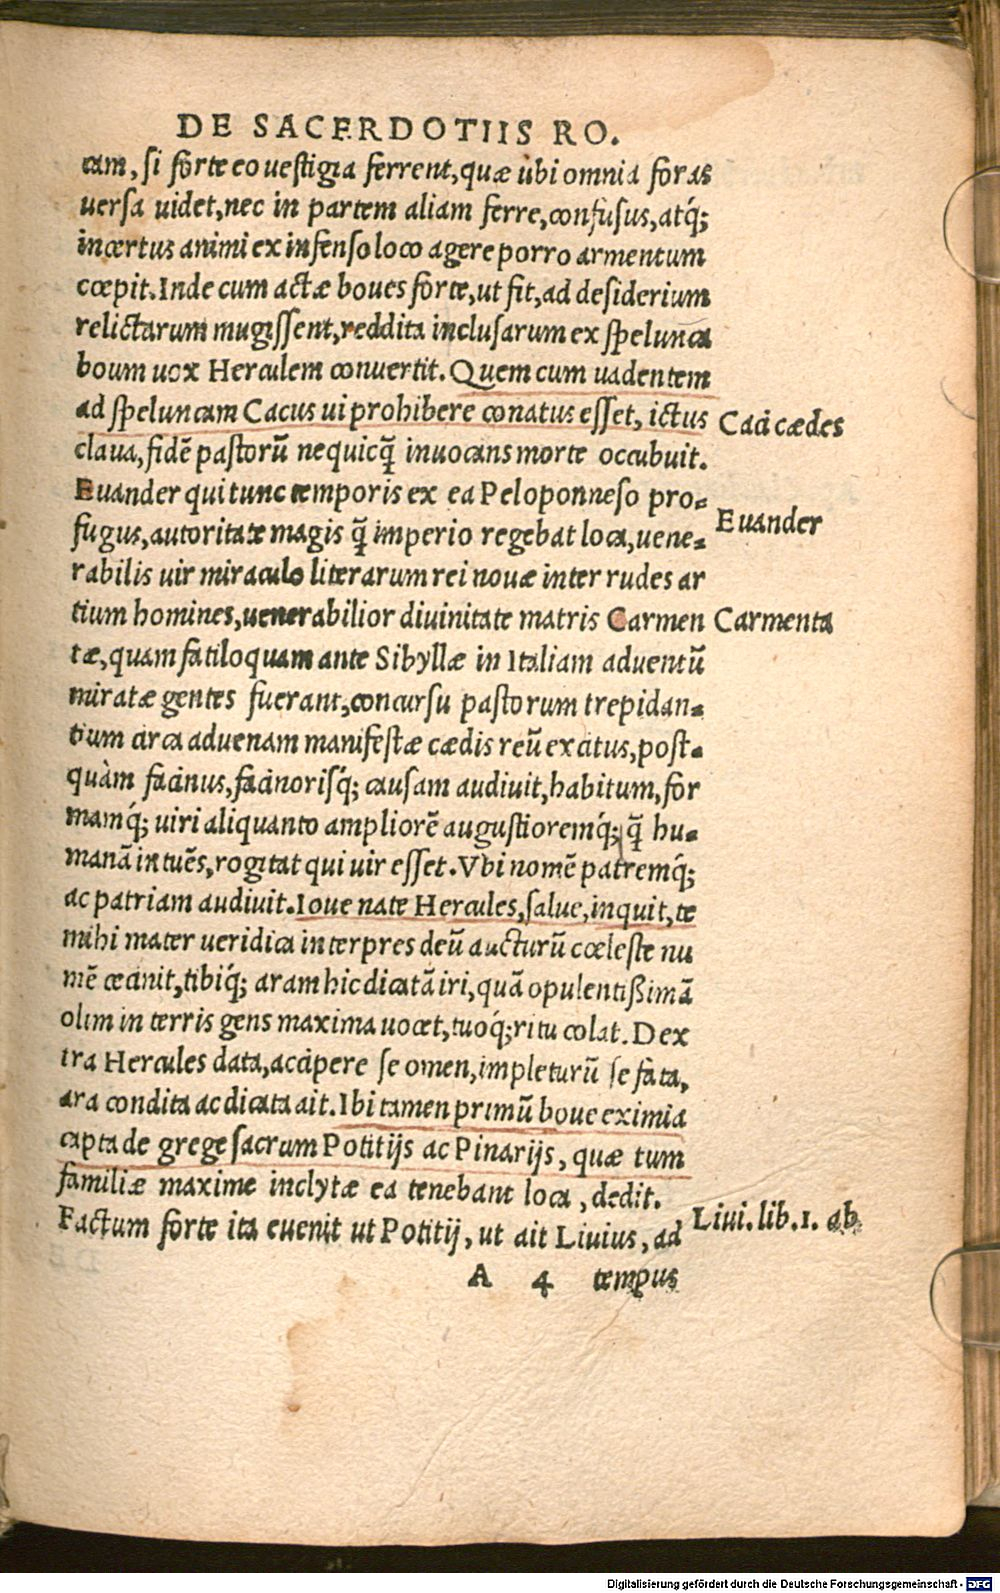 DE SACERDOTIIS RO.
cam, si forte eo uestigia ferrent, quæ ubi omnia foras
uersa uidet, nec in partem aliam ferre, confusus, atq́;
incertus animi ex infenso loco agere porro armentum
cœpit. Inde cum actæ boues forte, ut fit, ad desiderium
relictarum mugissent, reddita inclusarum ex spelunca
boum uox Herculem conuertit. Quem cum uadentem
ad speluncam Cacus ui prohibere conatus esset, ictus
Caci cædes
claua, fidē pastorū nequicq̄ inuocans morte occubuit.
Euander qui tunc temporis ex ea Peloponneso pro-
Euander
fugus, autoritate magis q̄ imperio regebat loca, uene-
rabilis uir miraculo literarum rei nouæ inter rudes ar
tium homines, uenerabilior diuinitate matris Carmen
Carmenta
tæ, quam fatiloquam ante Sibyllæ in Italiam aduentū
miratæ gentes fuerant, concursu pastorum trepidan-
tium circa aduenam manifestæ cædis reū excitus, post-
quàm facinus, facinorisq́; causam audiuit, habitum, for
mamq́; uiri aliquanto ampliorē augustioremq́; q̄ hu-
manā intuēs, rogitat qui uir esset. Vbi nomē patremq́;
ac patriam audiuit. Ioue nate Hercules, salue, inquit, te
mihi mater ueridica interpres deū aucturū cœleste nu
mē cecinit, tibiq́; aram hic dicatā iri, quā opulentißimā
olim in terris gens maxima uocet, tuoq́; ritu colat. Dex
tra Hercules data, accipere se omen, impleturū se fata,
ara condita ac dicata ait. Ibi tamen primū boue eximia
capta de grege sacrum Potitijs ac Pinarijs, quæ tum
familiæ maxime inclytæ ea tenebant loca, dedit.
Factum forte ita euenit ut Potitij, ut ait Liuius, ad
Liui. lib. 1. ab
A 4 tempus
Digitalisierung gefördert durch die Deutsche Forschungsgemeinschaft - DFG